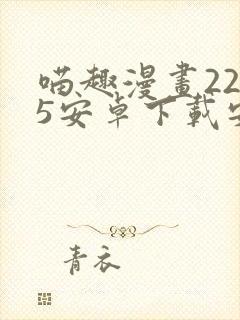 喵趣漫畫22
5安卓下載安
青衣